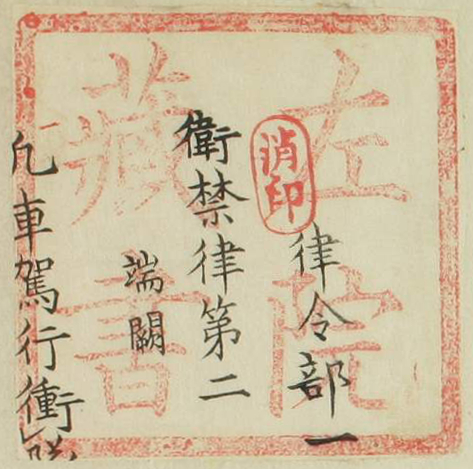 律令部一
衛禁律第二
端闕
凡車駕行衝
左院
藏書
消印